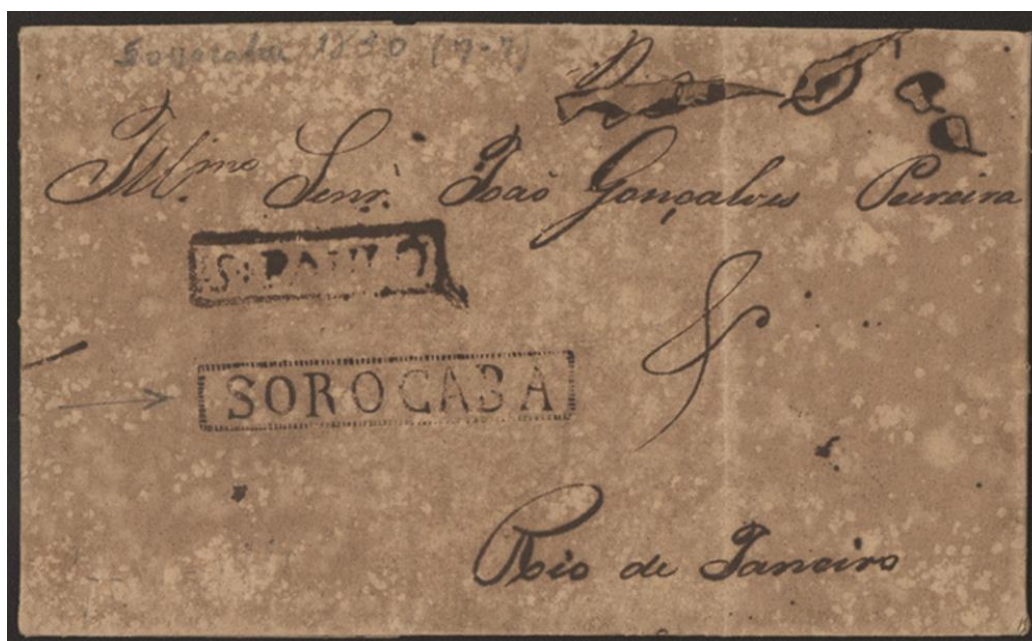 Sorocaba 1830 (7-7)
Illmo Senr. João Gonçalves Pereira
S. PAULO
SOROCABA
Rio de Janeiro